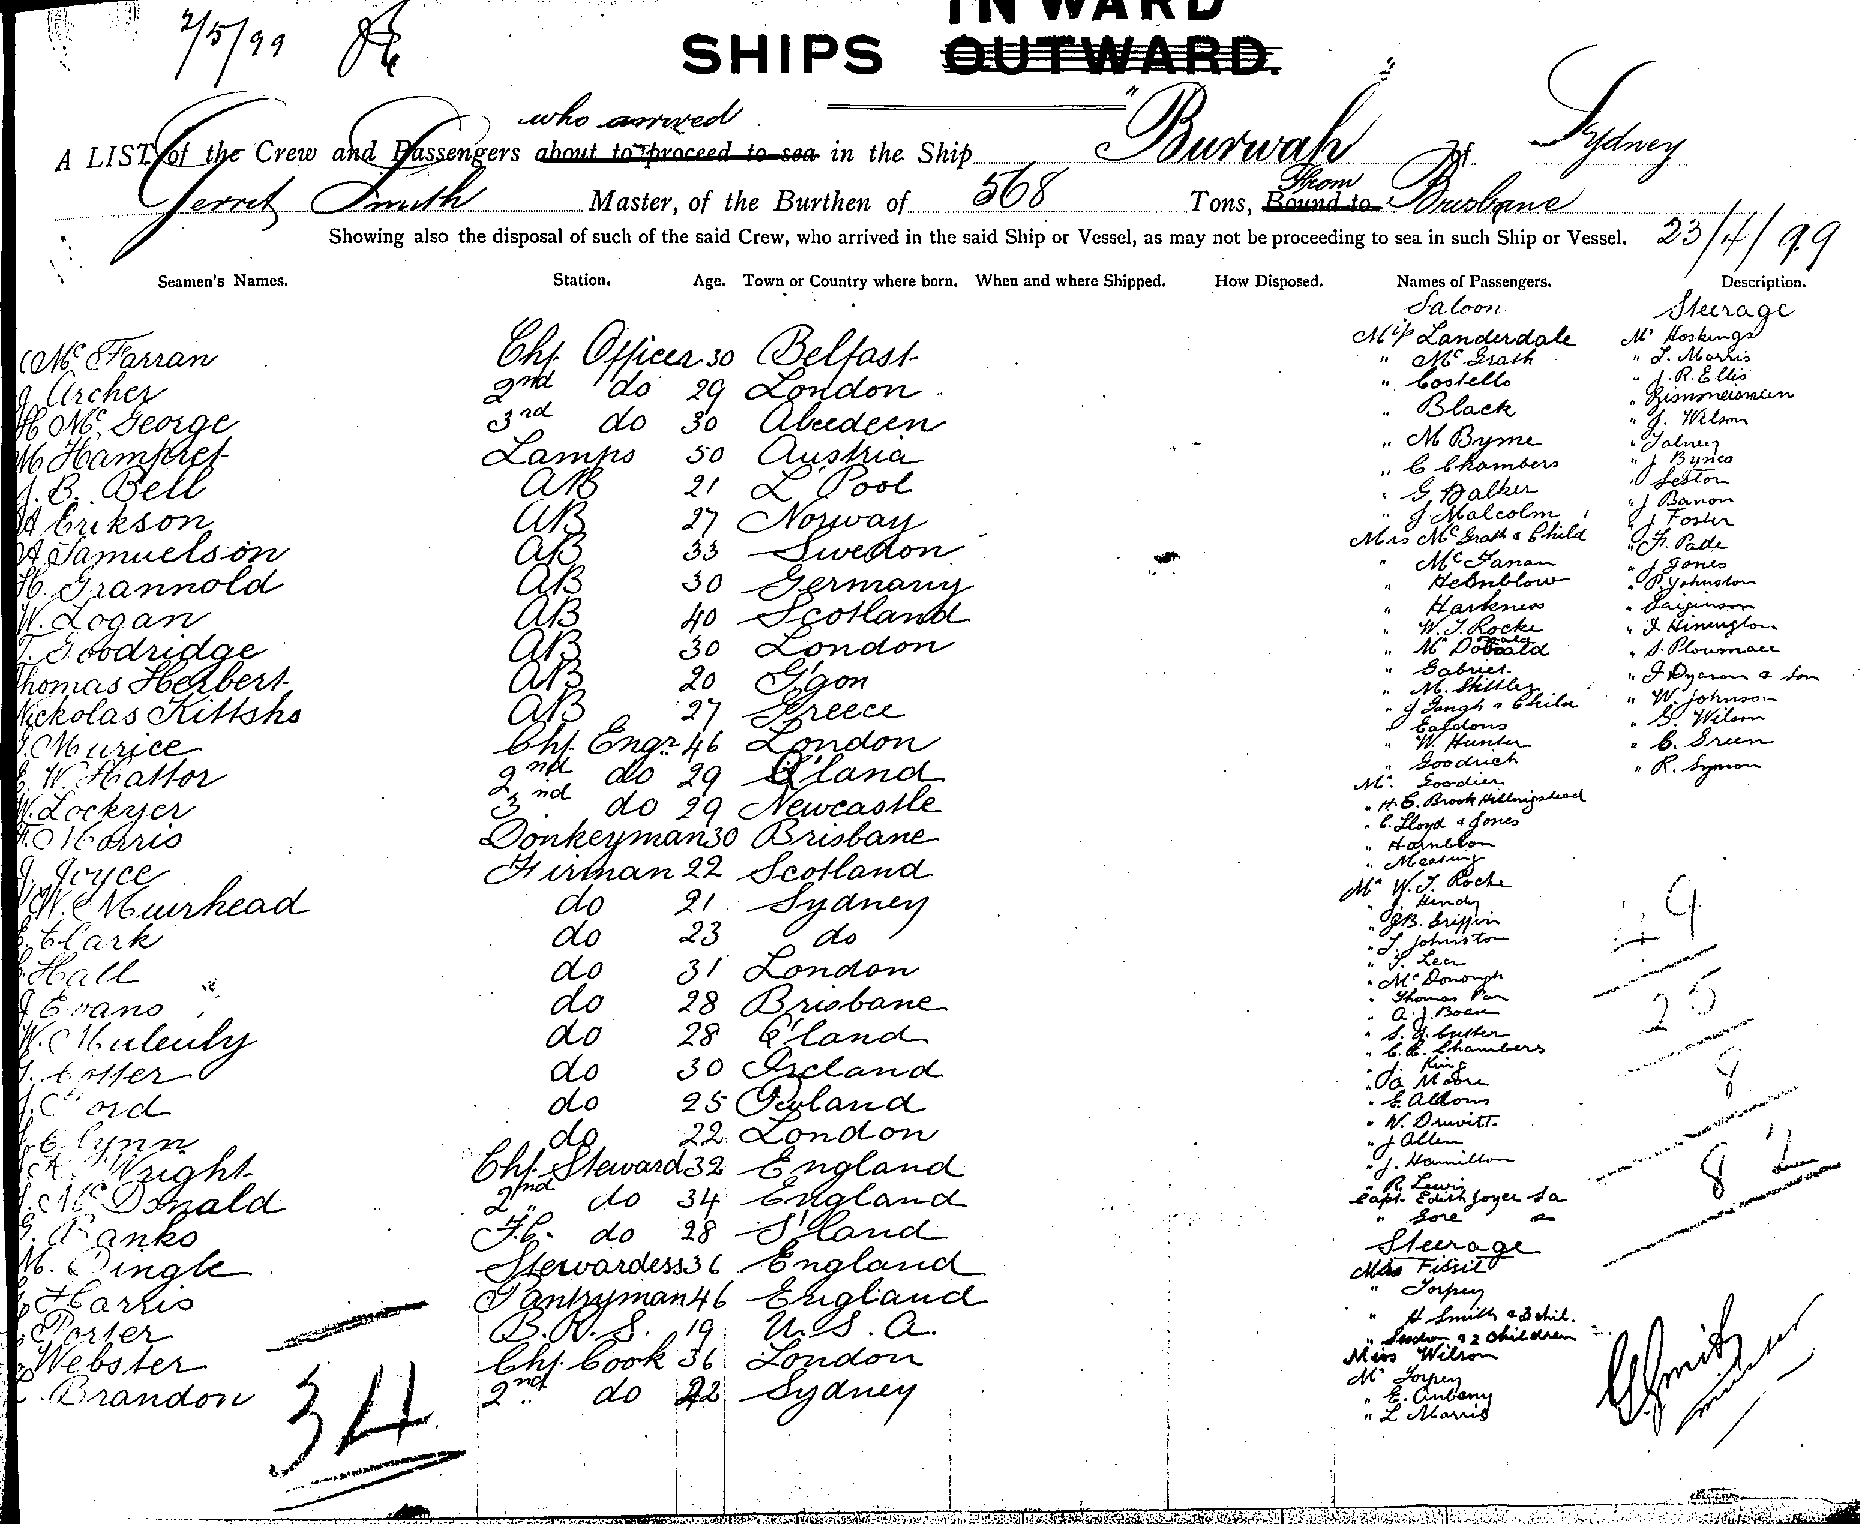 2/5/99
INWARD
SHIPS OUTWARD.
who arrived
A LIST of the Crew and Passengers about to proceed to sea in the Ship "Burwah" at Sydney
Gerret Smith Master, of the Burthen of 568 Tons, Bound to From Brisbane
Showing also the disposal of such of the said Crew, who arrived in the said Ship or Vessel, as may not be proceeding to sea in such Ship or Vessel. 23/4/99
Seamen's Names. Station. Age. Town or Country where born. When and where Shipped. How Disposed. Names of Passengers. Description.
Mc Farran Chf. Officer 30 Belfast
J Archer 2nd do 29 London
H Mc George 3rd do 30 Aberdeen
M Hampret Lamps 50 Austria
J. B. Bell AB 21 L'Pool
A Erikson AB 27 Norway
A Samuelson AB 33 Swedon
H. Grannold AB 30 Germany
W. Logan AB 40 Scotland
T. Goodridge AB 30 London
Thomas Herbert AB 20 G'gon
Nickolas Kittshs AB 27 Greece
Murice Chf. Engr. 46 London
E. W. Hattor 2nd do 29 Q'land
W. Lockyer 3nd do 29 Newcastle
Morris Donkeyman 30 Brisbane
J. Joyce Firman 22 Scotland
W. Muirhead do 21 Sydney
Clark do 23 do
Hall do 31 London
J Evans do 28 Brisbane
W. Muleuly do 28 Q'land
Cotter do 30 Ireland
Ford do 25 Poland
Flynn do 22 London
Wright Chf. Steward 32 England
Mc Donald 2nd do 34 England
Banks F.C. do 28 S'land
M. Dingle Stewardess 36 England
Harris Pantryman 46 England
Porter B. R. S. 19 U. S. A.
Webster Chf. Cook 36 London
Brandon 2nd do 22 Sydney
34
Saloon
M/s Landerdale
" Mc Grath
" Costello
" Black
" M Byrne
" C Chambers
" G. Walker
" J Malcolm
Mrs Mc Grath & Child
" Mc Fanan
" Hebnblow
" Harkness
" W. J. Rocke
" Mc Donald
" Gabriel
" M. Skittler
" J Gough & Child
" Eatdons
" W. Hunter
" Goodrich
Mr. Goodier
" H. E. Brook Hollingstead
" C. Lloyd & Jones
" Hamelton
" Measing
Mr W. J. Roche
" J. Hendy
" J B. Griffin
" T. Johnston
" T. Leer
" Mc Donough
" Thomas
" A. J. Boen
" S. G. Cutter
" C. E. Chambers
" J. King
" Moore
" E Altons
" W. Druvitt
" J Allen
" J. Hamilton
" R. Lewis
Capt. Edith Joyer
" Gore
Steerage
Mrs Fissil
" Torpey
" H Smith & 3 chil.
" Seedon & 2 children
Miss Wilson
Mr Torpey
" E. Anbeny
" L Morris
Steerage
Mr Hoskings
" T. Morris
" J. R. Ellis
" J. Wilson
" Talney
" J Bynes
" Seston
" J Banon
" J Foster
" F. Pade
" J Jones
" P. Johnston
" J Hinington
" S. Ploumace
" J Dyeson & Son
" W. Johnson
" G. Wilson
" C. Green
" R. Symon
49
25
8
82
G Smith
Master